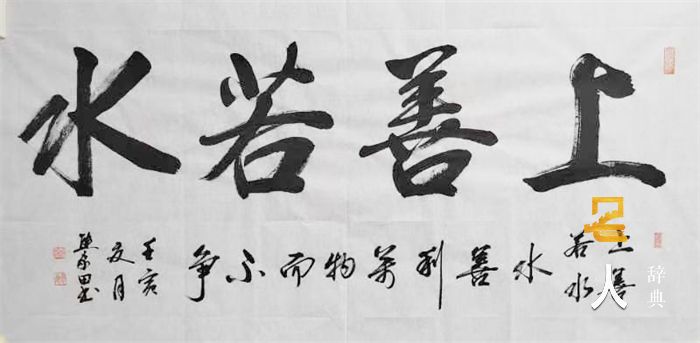 上善若水
上善
若水
水善利萬物而不争
壬寅
夏月
名人
辞典